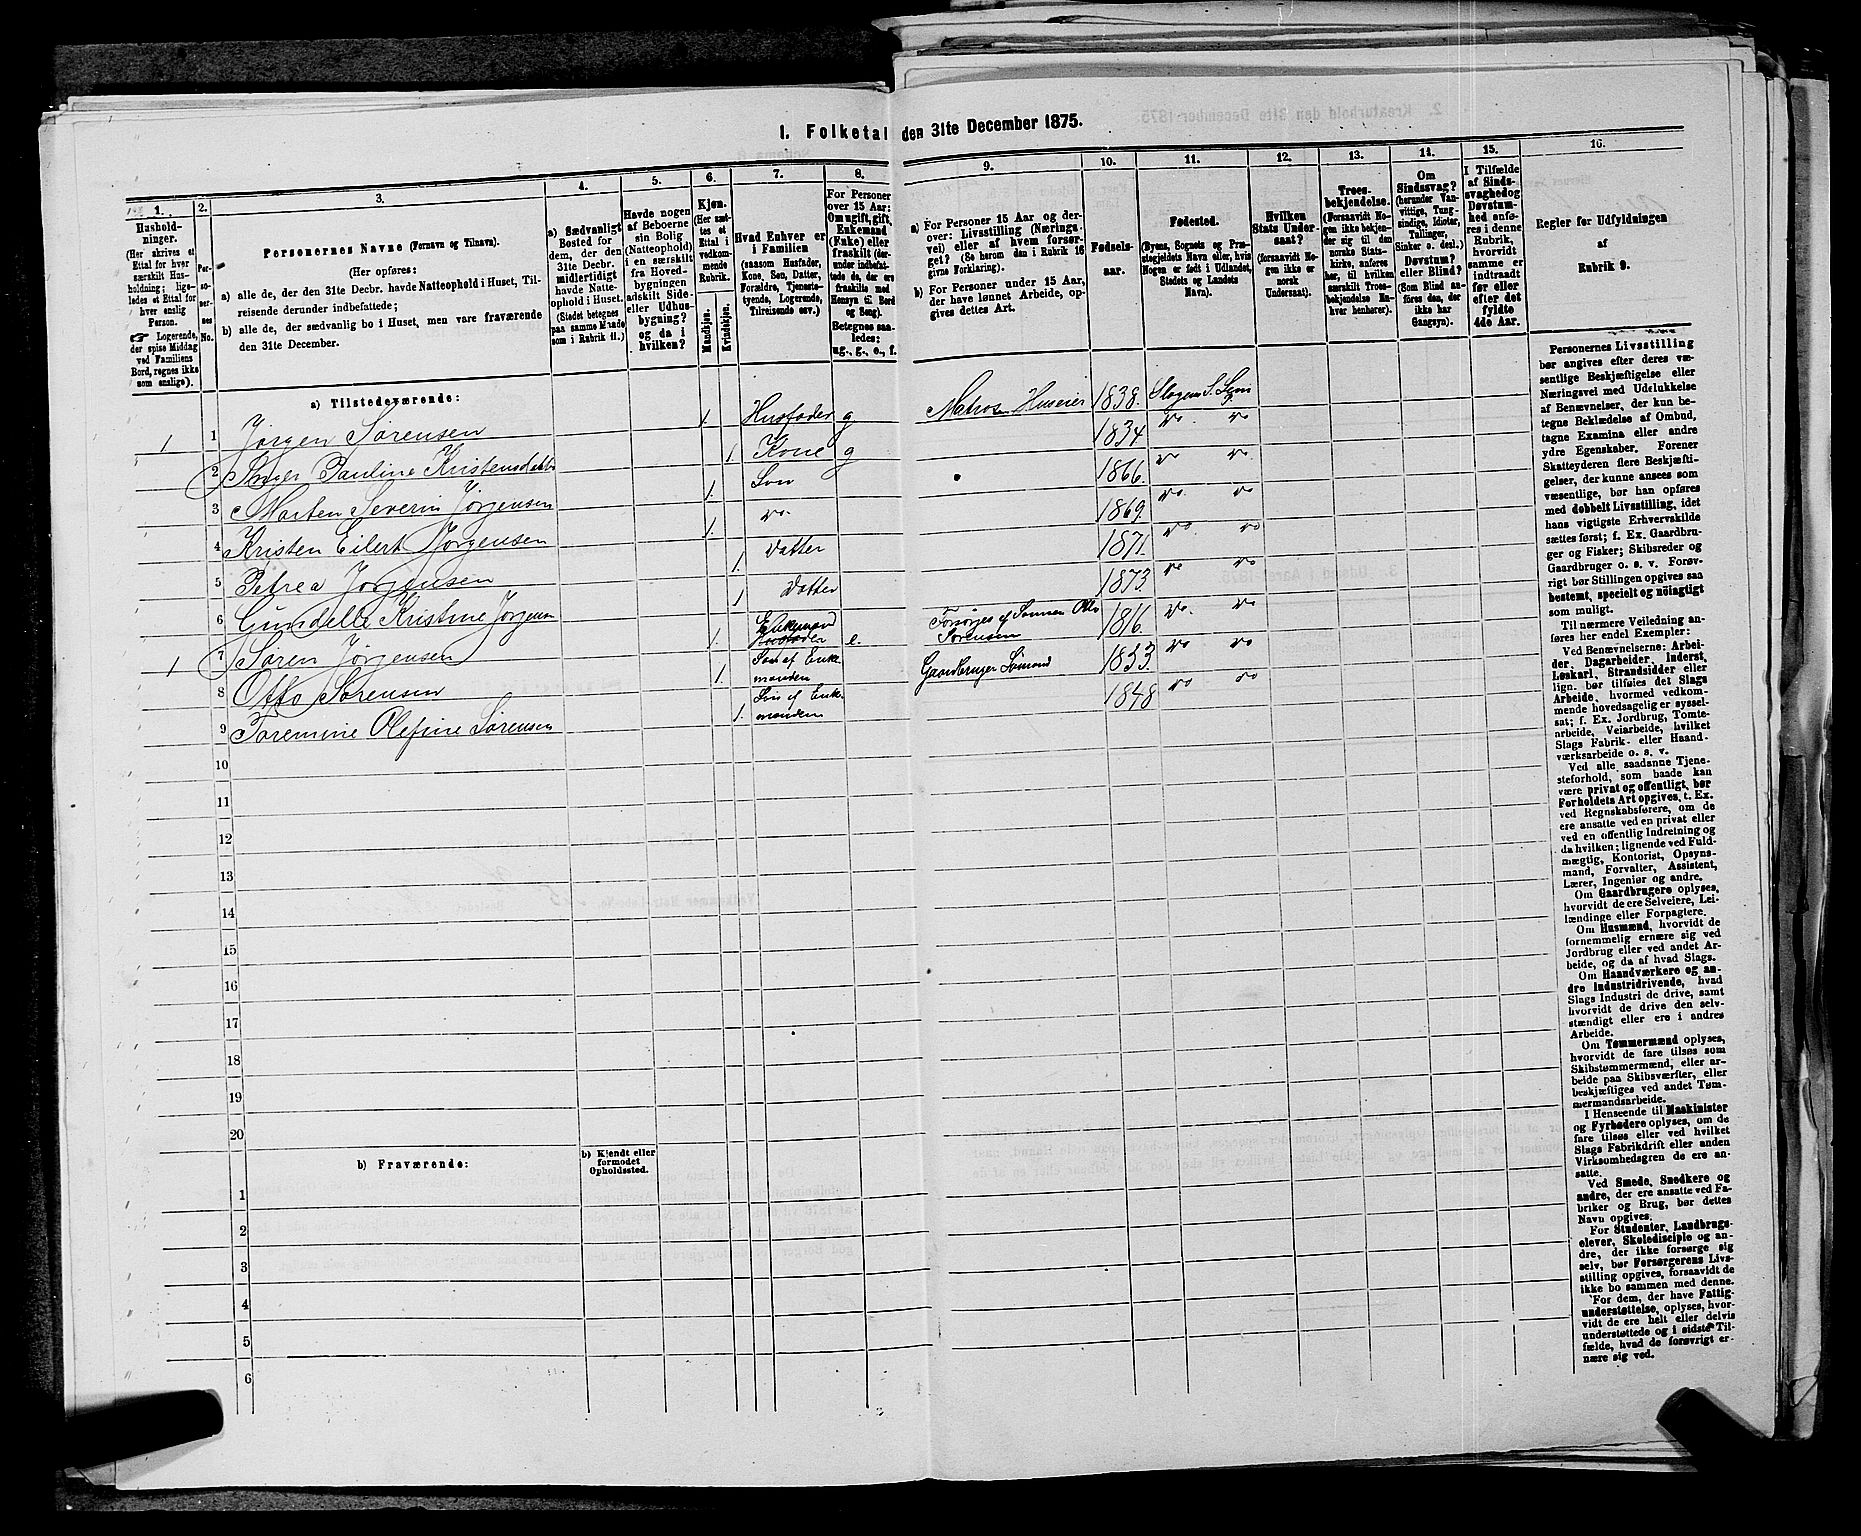 1. Folketal den 31te December 1875.
1. Husholdninger. (Her skrives et Ettal for hver særskilt Husholdning; ligeledes et Ettal for hver enslig Person. ☞ Logerende, der spise Middag ved Familiens Bord, regnes ikke som enslige).
2. Personernes No.
3. Personernes Navne (Fornavn og Tilnavn).
(Her opføres:
a) alle de, der den 31te Decbr. havde Natteophold i Huset, Tilreisende derunder indbefattede;
b) alle de, der sædvanlig bo i Huset, men vare fraværende den 31te December.
4. a) Sædvanligt Bosted for dem, der den 31te Decbr. midlertidigt havde Natteophold i Huset. (Stedet betegnes paa samme Maade som i Rubrik 11.)
5. Havde nogen af Beboerne sin Bolig (Natteophold) i en særskilt fra Hovedbygningen adskilt Side- eller Udhusbygning? og da i hvilken?
6. Kjøn. (Her sættes et Ettal i vedkommende Rubrik. Mandkjøn. Kvindekjøn.
7. Hvad Enhver er i Familien (saasom Husfader, Kone, Søn, Datter, Forældre, Tjenestetyende, Logerende, Tilreisende osv.)
8. For Personer over 15 Aar: Om ugift, gift, Enkemand (Enke) eller fraskilt (derunder indbefattede de, der ere fraskilte med Hensyn til Bord og Seng). Betegnes saaledes: ug., g., e., f.
9. a) For Personer 15 Aar og derover: Livsstilling (Næringsvei) eller af hvem forsørget? (Se herom den i Rubrik 16 givne Forklaring).
b) For Personer under 15 Aar, der have lønnet Arbeide, opgives dettes Art.
10. Fødselsaar.
11. Fødested. (Byens, Sognets og Præstegjeldets Navn eller, hvis Nogen er født i Udlandet, Stedets og Landets Navn).
12. Hvilken Stats Undersaat? (forsaavidt Nogen ikke er norsk Undersaat).
13. Troesbekjendelse. (Forsaavidt Nogen ikke bekjender sig til den norske Statskirke, anføres her, til hvilken særskilt Troesbekjendelse Enhver henhører).
14. Om Sindssvag? (herunder Vanvittige, Tungsindige, Idioter, Tullinger, Sinker o. desl.) Døvstum? eller Blind? (Som Blind anføres den, der ikke har Gangsyn).
15. I Tilfælde af Sindssvaghed og Døvstumhed anføres i denne Rubrik, hvorvidt samme er indtraadt før eller efter det fyldte 4de Aar.
16. Regler for Udfyldningen af Rubrik 9.
a) Tilstedeværende:
1 1 Jørgen Sørensen 1. Husfader g Matros Huseier 1838. Slagen S.
2 Inger Pauline Kristensdatter 1 Kone g 1834 do. do
3 Morten Severin Jørgensen 1. Søn 1866. do do.
4 Kristen Eilert Jørgensen 1. do. 1869. do. do
5 Petrea Jørgensen 1. Datter 1871. do do
6 Gundelle Kristine Jørgensen 1 Datter 1873. do do
1 7 Søren Jørgensen 1. Enkemand Husfader e. Forsørges af Sønnen Otto Sørensen 1816. do. do
8 Otto Sørensen 1. Søn af Enkemanden Gaardbruger Sømand 1853. do do
9 Toremine Olefine Sørensen 1. Søn af Enkemanden 1848 do do
10
11
12
13
14
15
16
17
18
19
20
b) Fraværende:
b) Kjendt eller formodet Opholdssted.
1
2
3
4
5
6
Personernes Livsstilling
bør angives efter deres væ-
sentlige Beskjæftigelse eller
Næringsvei med Udelukkelse
af Benævnelser, der kun be-
tegne Beklædelse af Ombud,
tagne Examina eller andre
ydre Egenskaber. Forener
Skatteyderen flere Beskjæfti-
gelser, der kunne ansees som
væsentlige, bør han opføres
med dobbelt Livsstilling, idet
hans vigtigste Erhvervskilde
sættes først; f. Ex. Gaardbru-
ger og Fisker; Skibsreder og
Gaardbruger o. s. v. Forøv-
rigt bør Stillingen opgives saa
bestemt, specielt og nøiagtigt
som muligt.
Til nærmere Veiledning an-
føres her endel Exempler:
Ved Benævnelserne: Arbei-
der, Dagarbeider, Inderst,
Løskarl, Strandsidder eller
lign. bør tilføies det Slags
Arbeide, hvormed vedkom-
mende hovedsagelig er syssel-
sat; f. Ex. Jordbrug, Tomte-
arbeide, Veiarbeide, hvilket
Slags Fabrik- eller Haand-
værksarbeide o. s. v.
Ved alle saadanne Tjene-
steforhold, som baade kan
være privat og offentligt, bør
Forholdets Art opgives, t. Ex.
ved Regnskabsførere, om de
ere ansatte ved en privat eller
ved en offentlig Indretning og
da hvilken; lignende ved Fuld-
mægtig, Kontorist, Opsyns-
mand, Forvalter, Assistent,
Lærer, Ingeniør og andre.
Om Gaardbrugere oplyses,
hvorvidt de ere Selveiere, Lei-
lændinge eller Forpagtere.
Om Husmænd, hvorvidt de
fornemmelig ernære sig ved
Jordbrug eller ved andet Ar-
beide, og da af hvad Slags.
Om Haandværkere og an-
dre Industridrivende, hvad
Slags Industri de drive, samt
hvorvidt de drive den selv-
stændigt eller ere i andres
Arbeide.
Om Tømmermænd oplyses,
hvorvidt de fare tilsøs som
Skibstømmermænd, eller ar-
beide paa Skibsværfter, eller
beskjæftiges ved andet Tøm-
mermandsarbeide.
I Henseende til Maskinister
og Fyrbødere oplyses, om de
fare tilsøs eller ved hvilket
Slags Fabrikdrift eller anden
Virksomhedsgren de ere an-
satte.
Ved Smede, Snedkere og
andre, der ere ansatte ved Fa-
briker og Brug, bør dettes
Navn opgives.
For Studenter, Landbrugs-
elever, Skoledisciple og an-
dre, der ikke forsørge sig
selv, bør Forsørgerens Livs-
stilling opgives, forsaavidt de
ikke bo sammen med denne.
For dem, der have Fattig-
understøttelse, oplyses, hvor-
vidt de ere helt eller delvis
understøttede og i sidste Til-
fælde, hvad de forøvrigt er-
nære sig ved.